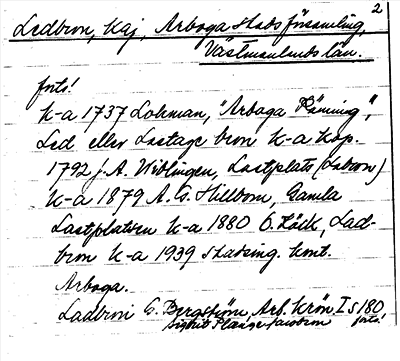 2
Ledbron, Kaj, Arboga stadsförsamling,
Västmanlands län.
forts!
K-a 1737 Lohman, "Arboga Känning",
Led eller Lastage bron K-a kop.
1792 J. A. Wiblingen, Lastplats (Labron)
K-a 1879 A. G. Hillbom, Gamla
Lastplatsen K-a 1880 O. Höök, Lad-
bron K-a 1939 stadsing. kont.
Arboga.
Ladbron G. Bergström, Arb. Krön. I s 180
forts!